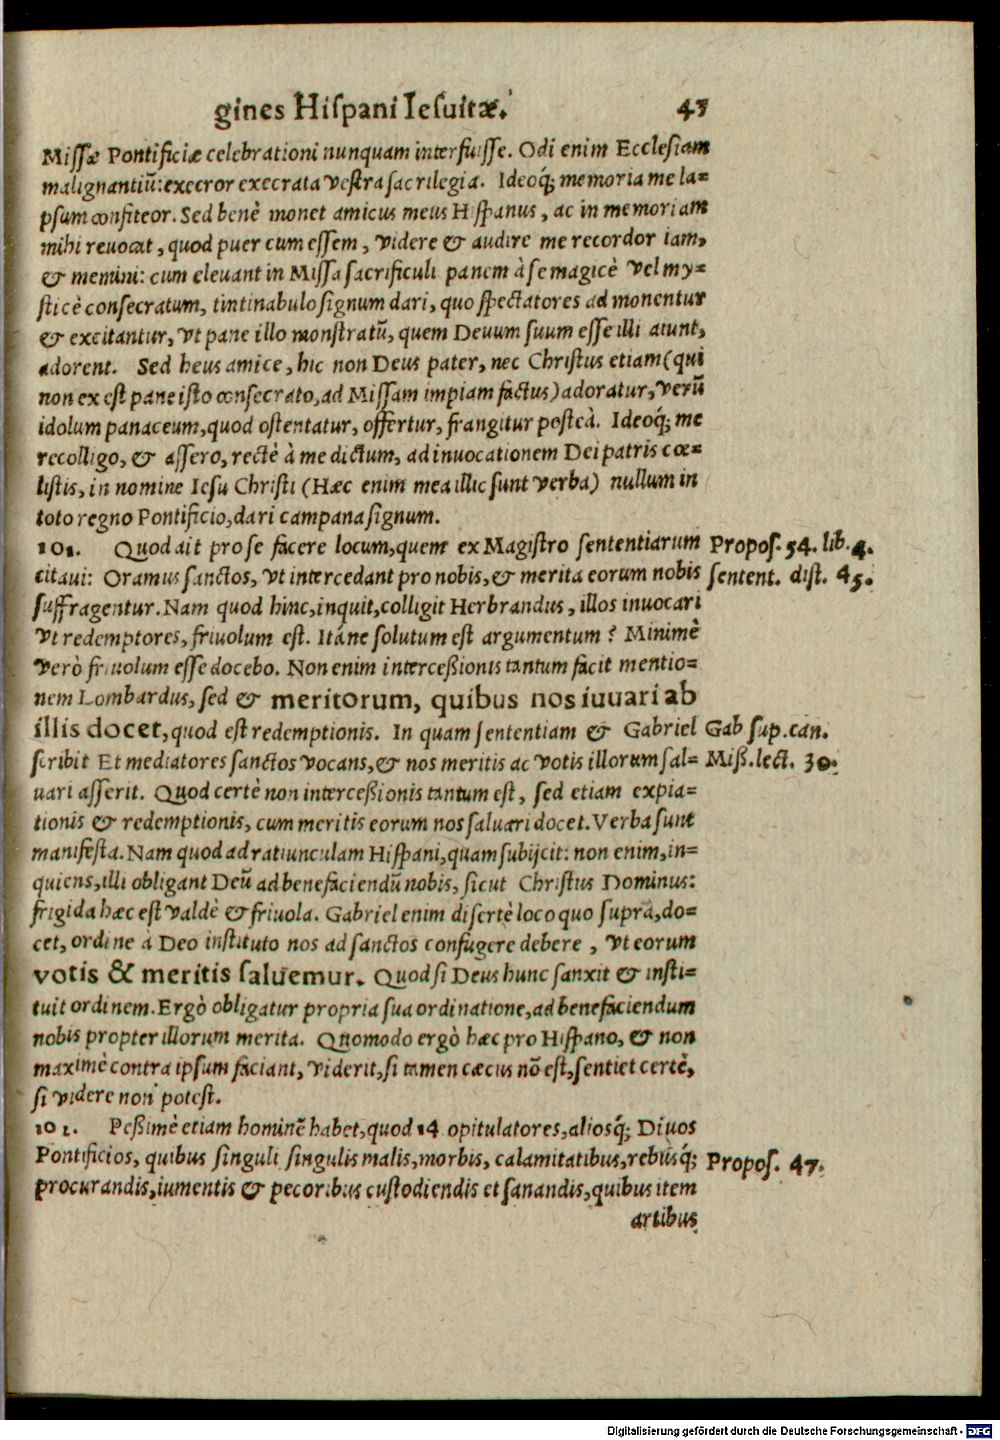 gines Hiſpani Ieſuitæ. 47
Miſſæ Pontificiæ celebrationi nunquam interfuiſſe. Odi enim Eccleſiam
malignantiũ: execror execrata veſtra ſacrilegia. Ideoq́; memoria me la=
pſum confiteor. Sed benè monet amicus meus Hiſpanus, ac in memoriam
mihi reuocat, quod puer cum eſſem, videre & audire me recordor iam,
& memini: cum eleuant in Miſſa ſacrificuli panem à ſe magicè vel my=
ſticè conſecratum, tintinabulo ſignum dari, quo ſpectatores admonentur
& excitantur, vt pane illo monſtratũ, quem Deuum ſuum eſſe illi aiunt,
adorent. Sed heus amice, hic non Deus pater, nec Chriſtus etiam (qui
non ex eſt pane iſto conſecrato, ad Miſſam impiam factus) adoratur, verũ
idolum panaceum, quod oſtentatur, offertur, frangitur poſteà. Ideoq́; me
recolligo, & aſſero, rectè à me dictum, ad inuocationem Dei patris cœ=
liſtis, in nomine Ieſu Chriſti (Hæc enim mea illic ſunt verba) nullum in
toto regno Pontificio, dari campana ſignum.
101. Quod ait pro ſe facere locum, quem ex Magiſtro ſententiarum Propoſ. 54. lib. 4.
citaui: Oramus ſanctos, vt intercedant pro nobis, & merita eorum nobis ſentent. diſt. 45.
ſuffragentur. Nam quod hinc, inquit, colligit Herbrandus, illos inuocari
vt redemptores, friuolum eſt. Itáne ſolutum eſt argumentum? Minimè
verò friuolum eſſe docebo. Non enim interceßionis tantum facit mentio=
nem Lombardus, ſed & meritorum, quibus nos iuuari ab
illis docet, quod eſt redemptionis. In quam ſententiam & Gabriel Gab ſup. can.
ſcribit Et mediatores ſanctos vocans, & nos meritis ac votis illorum ſal= Miß. lect. 30.
uari aſſerit. Quod certè non interceßionis tantum eſt, ſed etiam expia=
tionis & redemptionis, cum meritis eorum nos ſaluari docet. Verba ſunt
manifeſta. Nam quod ad ratiunculam Hiſpani, quam ſubijcit: non enim, in=
quiens, illi obligant Deũ ad benefaciendũ nobis, ſicut Chriſtus Dominus:
frigida hæc eſt valdè & friuola. Gabriel enim diſertè loco quo ſupra, do=
cet, ordine à Deo inſtituto nos ad ſanctos confugere debere, vt eorum
votis & meritis ſaluemur. Quod ſi Deus hunc ſanxit & inſti=
tuit ordinem. Ergò obligatur propria ſua ordinatione, ad benefaciendum
nobis propter illorum merita. Quomodo ergò hæc pro Hiſpano, & non
maximè contra ipſum faciant, viderit, ſi tamen cæcus nõ eſt, ſentiet certè,
ſi videre non poteſt.
101. Peßimè etiam hominẽ habet, quod 14 opitulatores, alioſq́; Diuos
Pontificios, quibus ſinguli ſingulis malis, morbis, calamitatibus, rebuſq́; Propoſ. 47.
procurandis, iumentis & pecoribus cuſtodiendis et ſanandis, quibus item
artibus
Digitalisierung gefördert durch die Deutsche Forschungsgemeinschaft - DFG